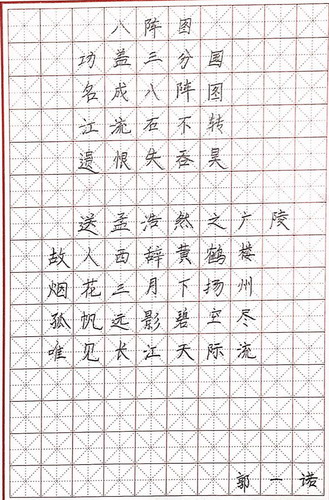 八阵图
功盖三分国
名成八阵图
江流石不转
遗恨失吞吴
送孟浩然之广陵
故人西辞黄鹤楼
烟花三月下扬州
孤帆远影碧空尽
唯见长江天际流
郭一诺